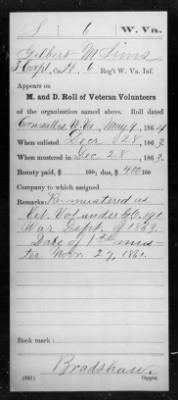 S 6 W. Va.
Gilbert M Sims
Corpl, Co. H, 6 Reg't W. Va. Inf.
Appears on
M. and D. Roll of Veteran Volunteers
of the organization named above. Roll dated
W. Va., May 9, 1864
When enlisted Decr 28, 1863
When mustered in Dec 28, 1863
Bounty paid, $ 100; due, $ 400 100
Company to which assigned
Remarks: Re-mustered as
Vet. Vol under G.O. 191
War Dept. of 1863.
Date of 1st mus-
ter Nov. 27 1861.
Book mark:
Bradshaw.
(861) Copyist.